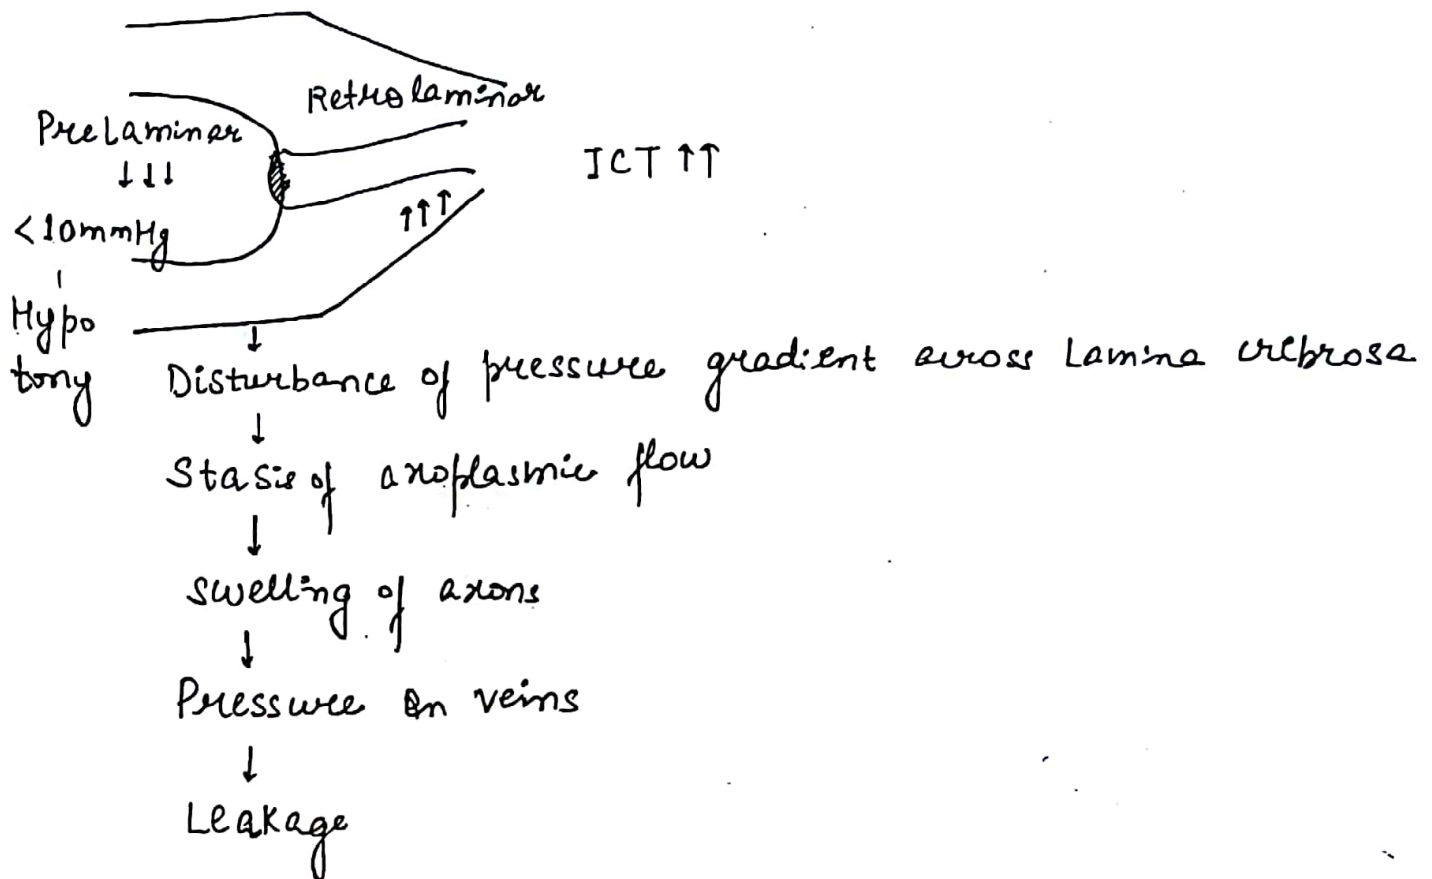 Retrolaminar
Prelaminar
↓↓↓
ICT ↑↑
<10mmHg
↑↑↑
Hypo
tony
↓
Disturbance of pressure gradient across Lamina cribrosa
↓
Stasis of axoplasmic flow
↓
Swelling of axons
↓
Pressure on veins
↓
Leakage